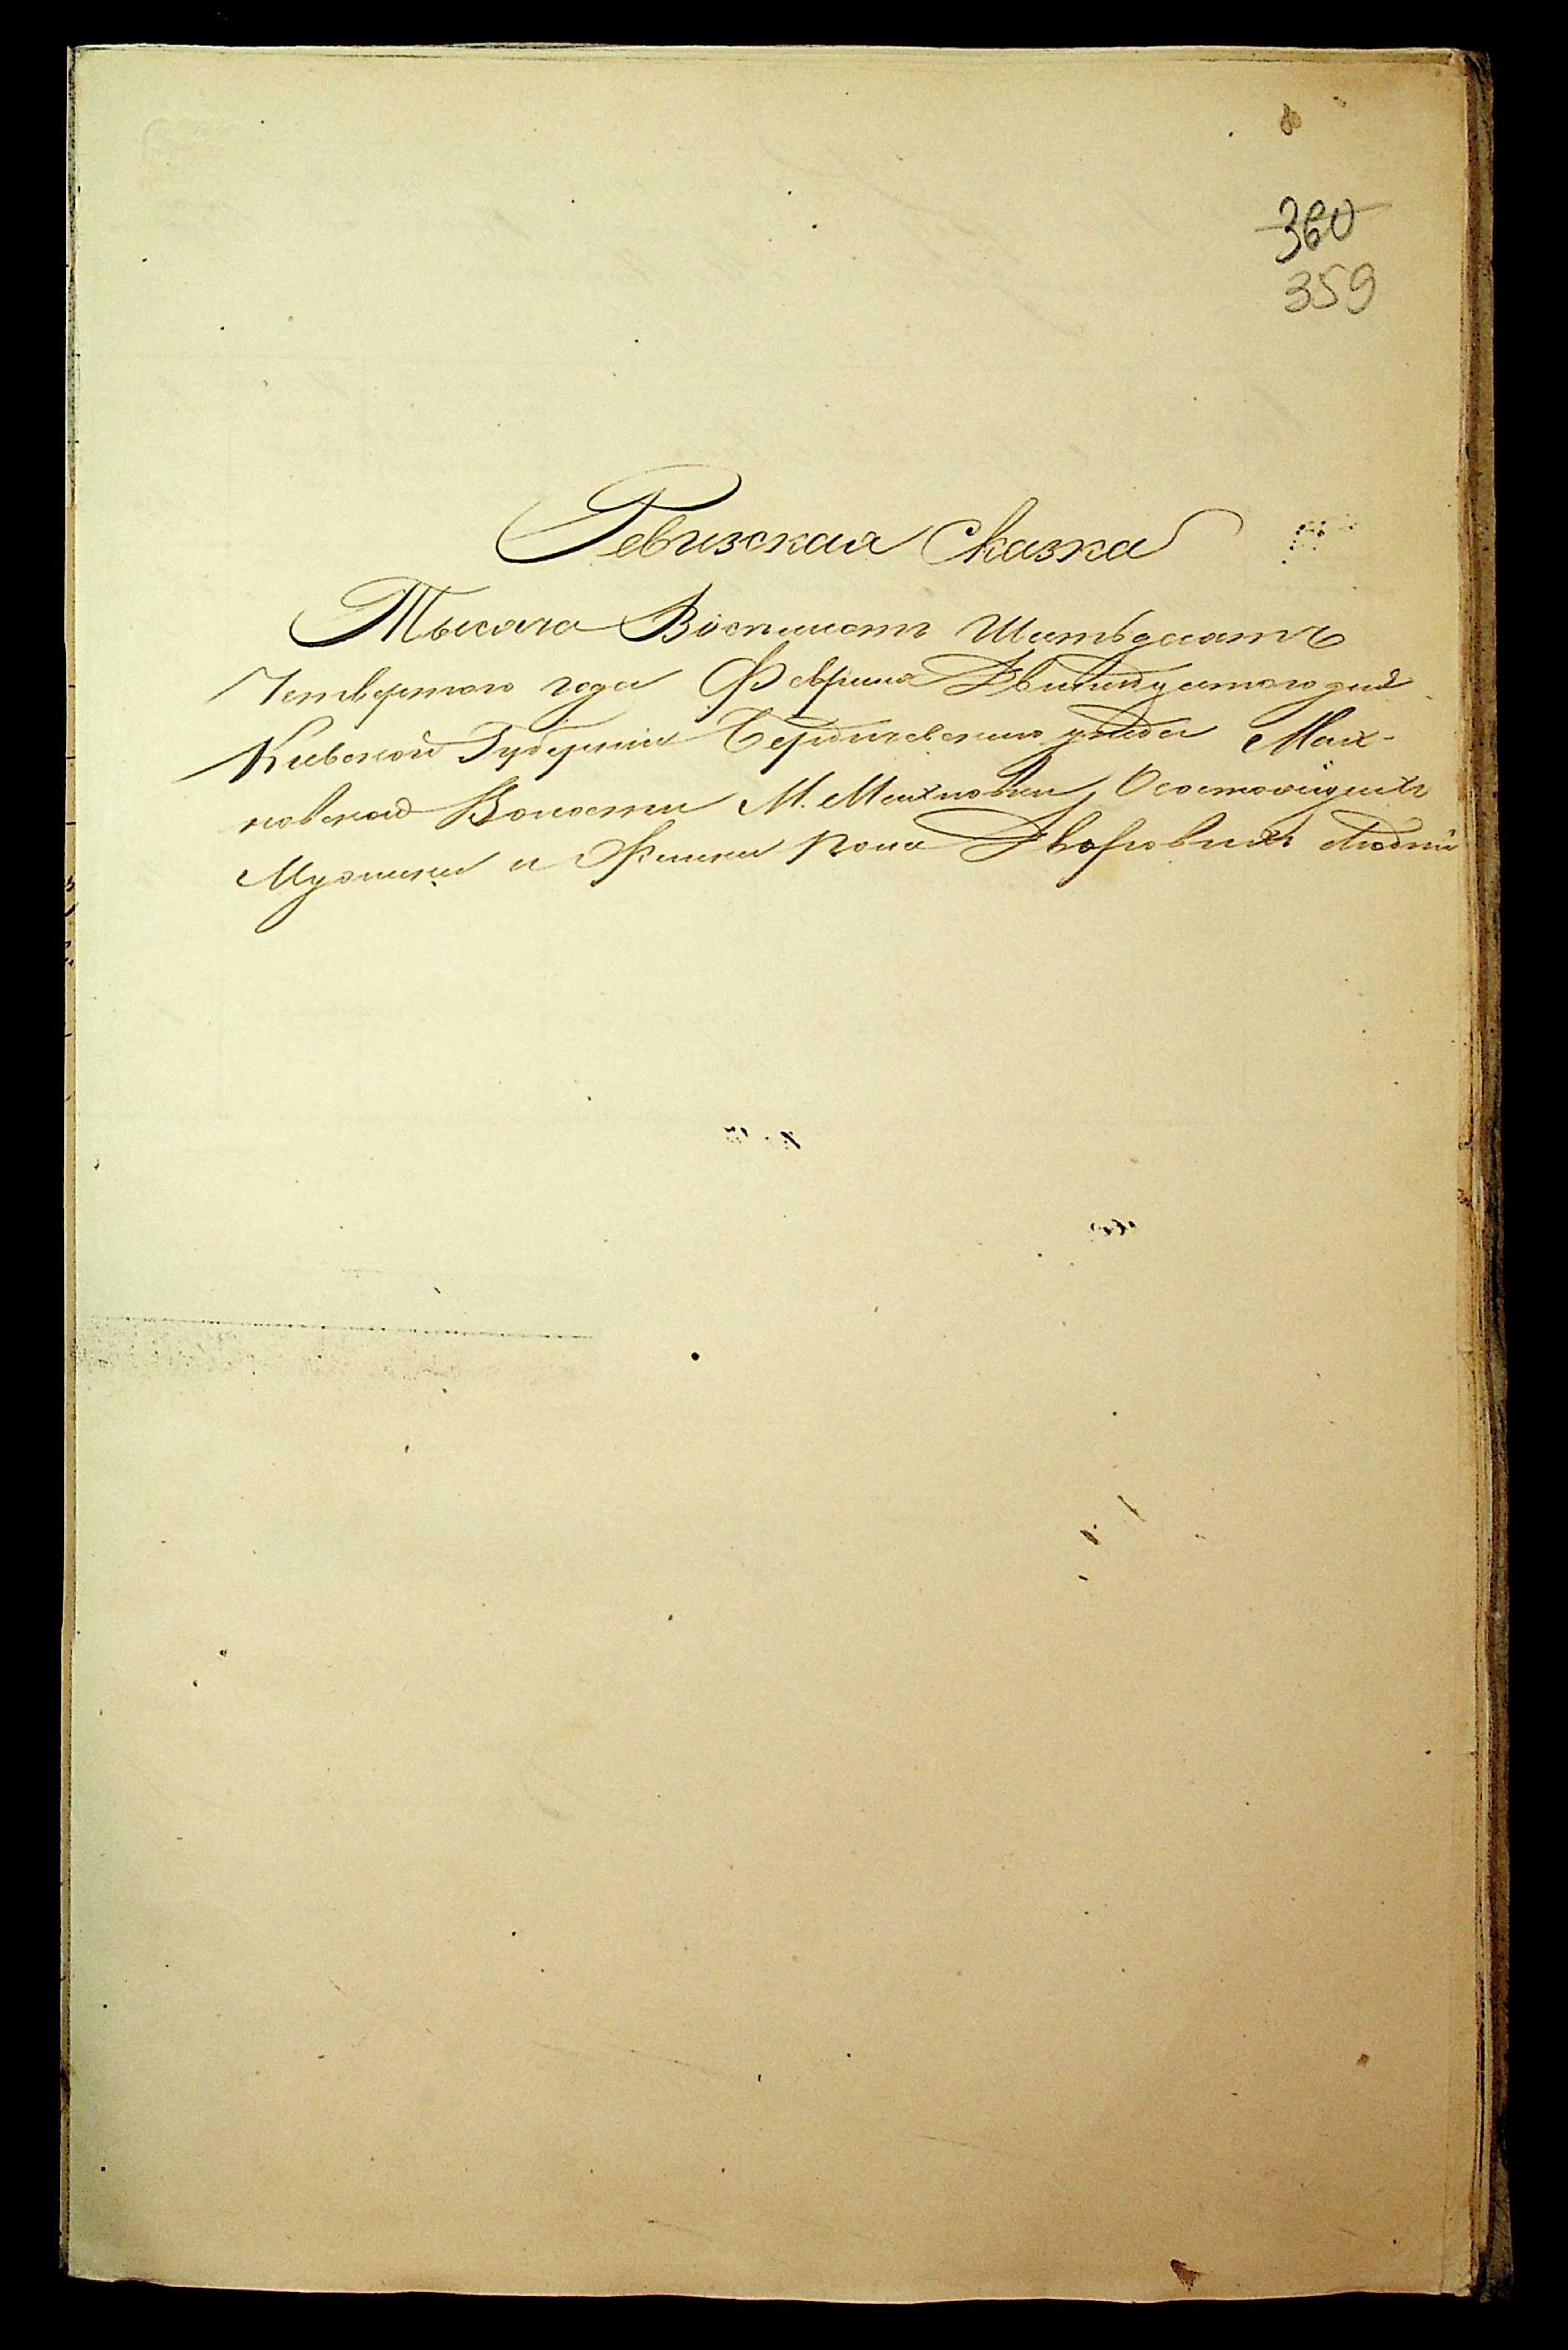 360
359
Ревизская Сказка
Тысяча Восемсотъ Шетьдесятъ
Четвертого года Февраля Двенадцатого дня
Киевской Губернии Бердичевского уезда Мах-
новской Волости М. Махновки О состоящихъ
Мужеска и Женска пола Дворовыхъ Людей